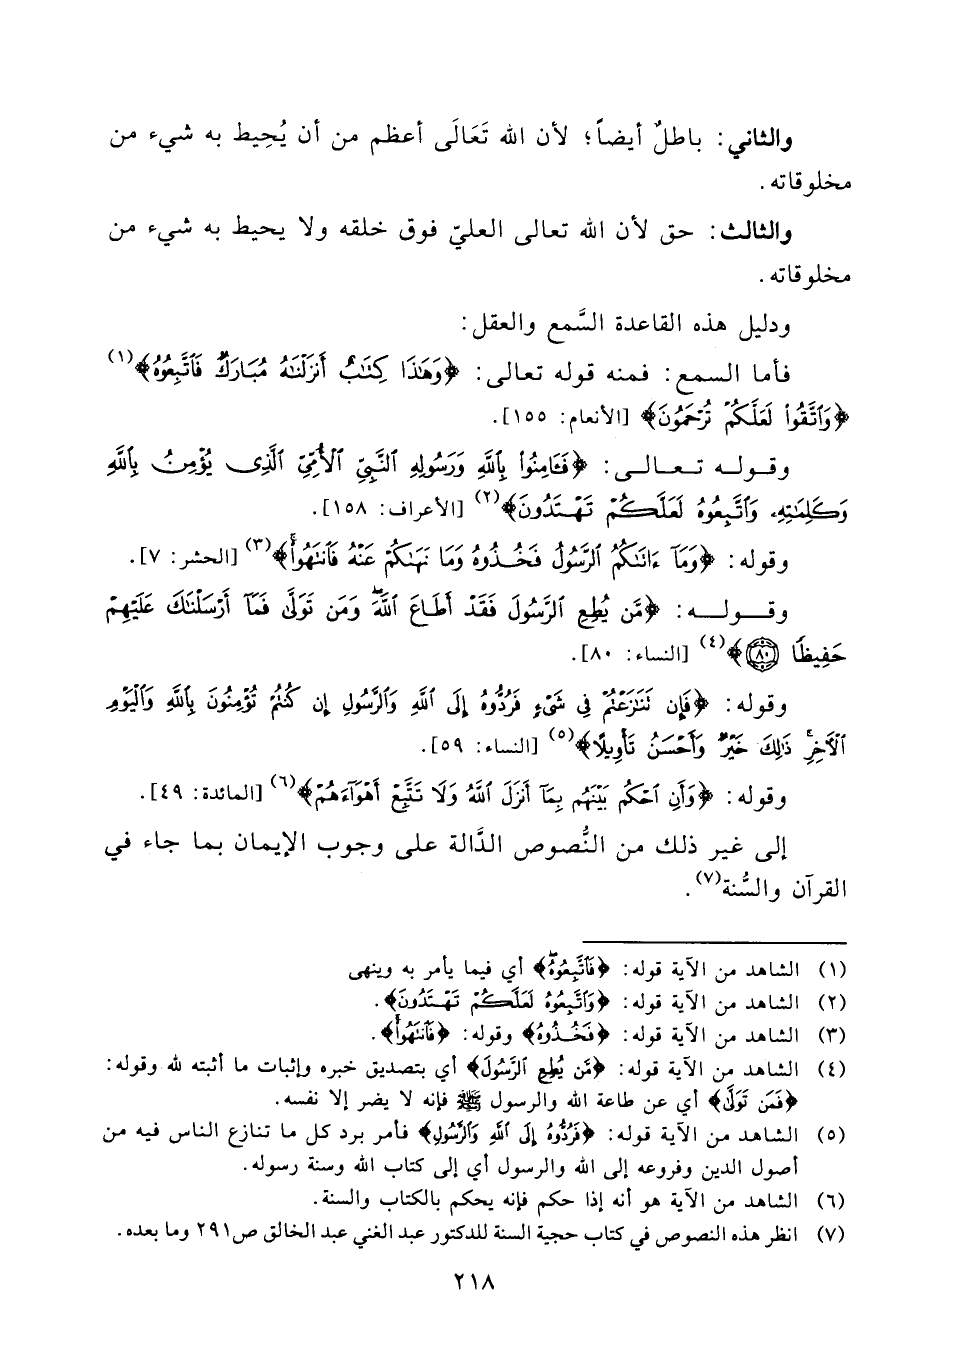 والثاني: باطلٌ أيضاً؛ لأن الله تَعَالَى أعظم من أن يُحِيط به شيء من
مخلوقاته.
والثالث: حق لأن الله تعالى العليّ فوق خلقه ولا يحيط به شيء من
مخلوقاته.
ودليل هذه القاعدة السَّمع والعقل:
فأما السمع: فمنه قوله تعالى: ﴿وَهَٰذَا كِتَٰبٌ أَنزَلْنَٰهُ مُبَارَكٌ فَٱتَّبِعُوهُ﴾(١)
﴿وَٱتَّقُوا۟ لَعَلَّكُمْ تُرْحَمُونَ﴾ [الأنعام: ١٥٥].
وقوله تعالى: ﴿فَـَٔامِنُوا۟ بِٱللَّهِ وَرَسُولِهِ ٱلنَّبِيِّ ٱلْأُمِّيِّ ٱلَّذِى يُؤْمِنُ بِٱللَّهِ
وَكَلِمَٰتِهِۦ وَٱتَّبِعُوهُ لَعَلَّكُمْ تَهْتَدُونَ﴾(٢) [الأعراف: ١٥٨].
وقوله: ﴿وَمَآ ءَاتَىٰكُمُ ٱلرَّسُولُ فَخُذُوهُ وَمَا نَهَىٰكُمْ عَنْهُ فَٱنتَهُوا۟ۚ﴾(٣) [الحشر: ٧].
وقوله: ﴿مَّن يُطِعِ ٱلرَّسُولَ فَقَدْ أَطَاعَ ٱللَّهَۖ وَمَن تَوَلَّىٰ فَمَآ أَرْسَلْنَٰكَ عَلَيْهِمْ
حَفِيظًا ۝٨٠﴾(٤) [النساء: ٨٠].
وقوله: ﴿فَإِن تَنَٰزَعْتُمْ فِى شَىْءٍ فَرُدُّوهُ إِلَى ٱللَّهِ وَٱلرَّسُولِ إِن كُنتُمْ تُؤْمِنُونَ بِٱللَّهِ وَٱلْيَوْمِ
ٱلْـَٔاخِرِۚ ذَٰلِكَ خَيْرٌ وَأَحْسَنُ تَأْوِيلًا﴾(٥) [النساء: ٥٩].
وقوله: ﴿وَأَنِ ٱحْكُم بَيْنَهُم بِمَآ أَنزَلَ ٱللَّهُ وَلَا تَتَّبِعْ أَهْوَآءَهُمْ﴾(٦) [المائدة: ٤٩].
إلى غير ذلك من النُّصوص الدَّالة على وجوب الإيمان بما جاء في
القرآن والسُّنة(٧).
(١) الشاهد من الآية قوله: ﴿فَٱتَّبِعُوهُۖ﴾ أي فيما يأمر به وينهى
(٢) الشاهد من الآية قوله: ﴿وَٱتَّبِعُوهُ لَعَلَّكُمْ تَهْتَدُونَ﴾.
(٣) الشاهد من الآية قوله: ﴿فَخُذُوهُ﴾ وقوله: ﴿فَٱنتَهُوا۟ۚ﴾.
(٤) الشاهد من الآية قوله: ﴿مَّن يُطِعِ ٱلرَّسُولَ﴾ أي بتصديق خبره وإثبات ما أثبته لله وقوله:
﴿فَمَن تَوَلَّىٰ﴾ أي عن طاعة الله والرسول ﷺ فإنه لا يضر إلا نفسه.
(٥) الشاهد من الآية قوله: ﴿فَرُدُّوهُ إِلَى ٱللَّهِ وَٱلرَّسُولِ﴾ فأمر برد كل ما تنازع الناس فيه من
أصول الدين وفروعه إلى الله والرسول أي إلى كتاب الله وسنة رسوله.
(٦) الشاهد من الآية هو أنه إذا حكم فإنه يحكم بالكتاب والسنة.
(٧) انظر هذه النصوص في كتاب حجية السنة للدكتور عبد الغني عبد الخالق ص٢٩١ وما بعده.
٢١٨